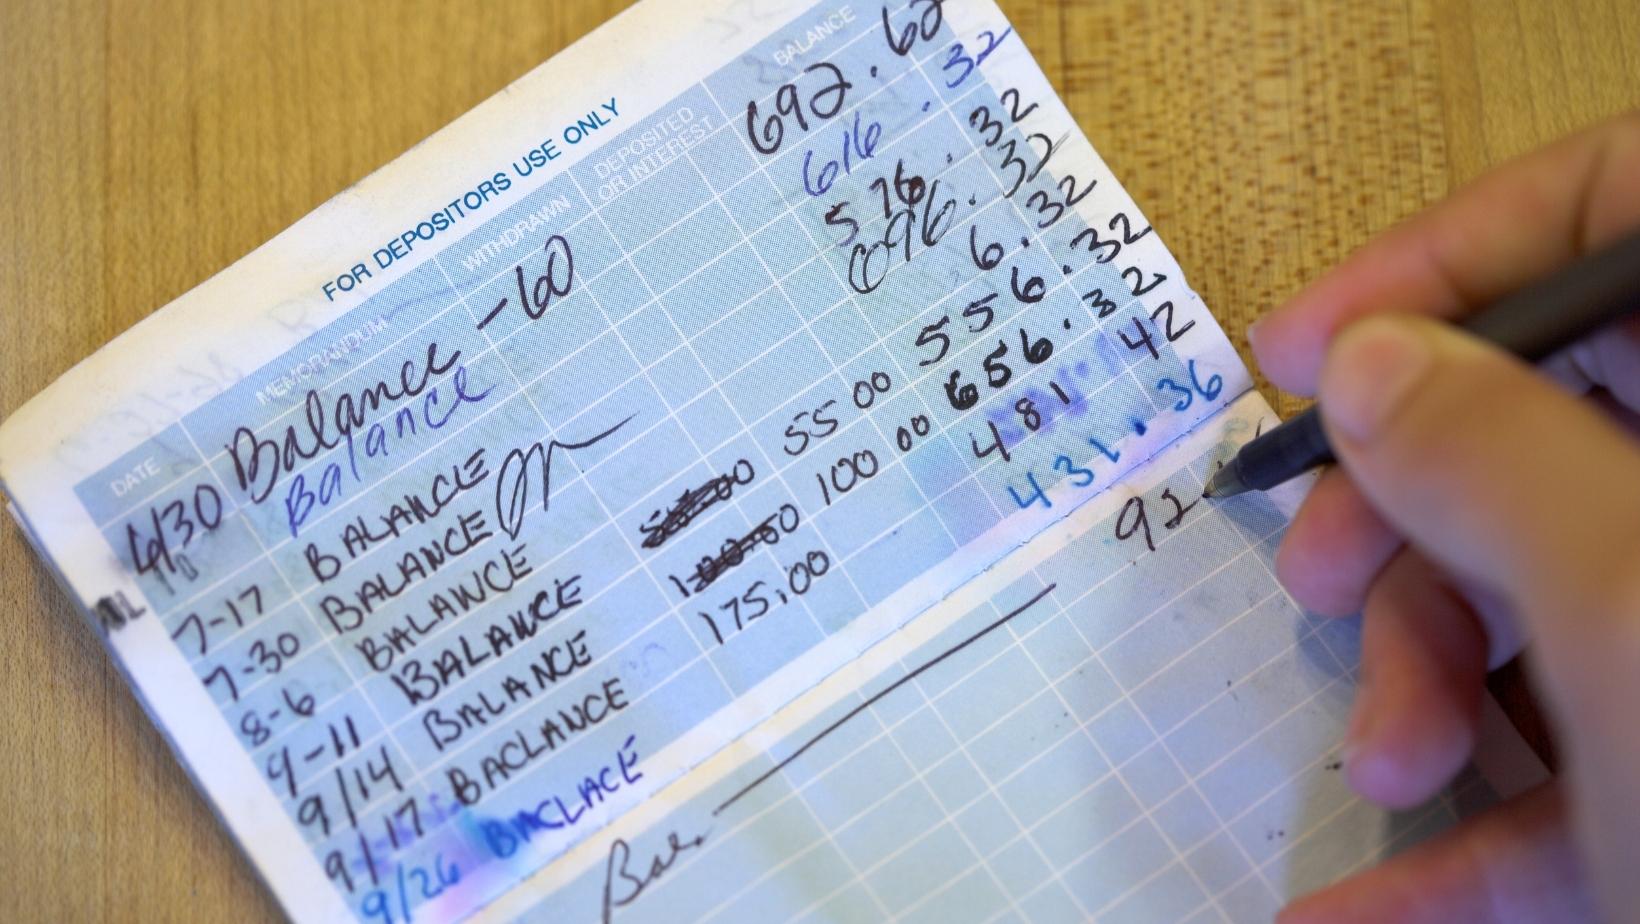 FOR DEPOSITORS USE ONLY
DATE MEMORANDUM WITHDRAWN DEPOSITED OR INTEREST BALANCE
6/30 Balance -60 692.62
Balance 616.32
7-17 BALANCE 576.32
7-30 BALANCE 696.32
8-6 BALANCE 6.32
9-11 BALANCE 55 00 556.32
9/14 BALANCE 100 00 656.32
9/17 BACLANCE 175.00 481 42
9/26 BACLACE 431.36
Bal. 92